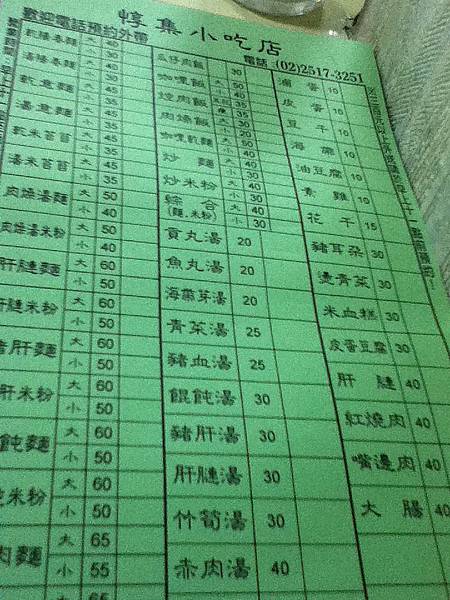 惇集小吃店
歡迎電話預約外帶
電話:(02)2517-3251
40
乾陽春麵 小 30
湯陽春麵 大 45 小 35
乾意麵 大 45 小 35
湯意麵 大 45 小 35
乾米苔苔 大 45 小 35
湯米苔苔 大 45 小 35
肉燥湯麵 大 50 小 40
肉燥湯米粉 大 50 小 40
肝腱麵 大 60 小 50
肝腱米粉 大 60 小 50
豬肝麵 大 60 小 50
肝米粉 大 60 小 50
飩麵 大 60 小 50
米粉 大 60 小 50
肉麵 大 65 小 55
大 60
瓜仔肉飯 30
咖哩飯 大 50 小 40
焢肉飯
肉燥飯
咖哩乾麵 大 50 小 40
炒麵 大 40 小 30
炒米粉 大 40 小 30
綜合(麵.米粉) 大 40 小 30
貢丸湯 20
魚丸湯 20
海帶芽湯 20
青菜湯 25
豬血湯 25
餛飩湯 30
豬肝湯 30
肝腱湯 30
竹筍湯 30
赤肉湯 40
滷蛋 10
皮蛋 10
豆干 10
海帶 10
油豆腐 10
素雞 10
花干 15
豬耳朵 30
燙青菜 30
米血糕 30
皮蛋豆腐 30
肝腱 40
紅燒肉 40
嘴邊肉 40
大腸 40